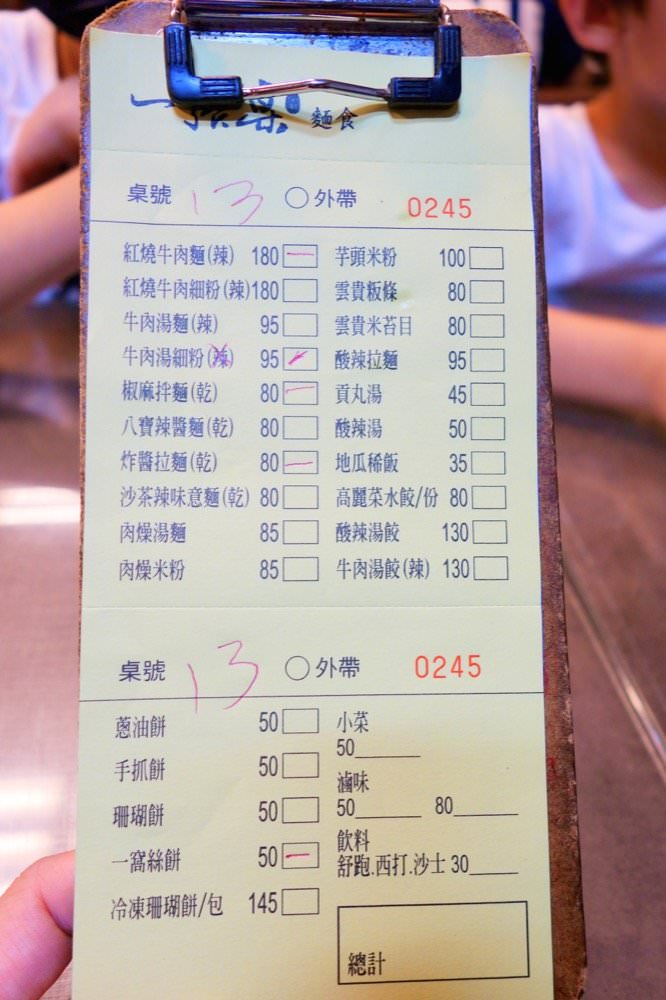 一品果 麵食
桌號 13 ○外帶 0245
紅燒牛肉麵(辣) 180 一 芋頭米粉 100
紅燒牛肉細粉(辣) 180 雲貴粄條 80
牛肉湯麵(辣) 95 雲貴米苔目 80
牛肉湯細粉(辣) 95 酸辣拉麵 95
椒麻拌麵(乾) 80 一 貢丸湯 45
八寶辣醬麵(乾) 80 酸辣湯 50
炸醬拉麵(乾) 80 一 地瓜稀飯 35
沙茶辣味意麵(乾) 80 高麗菜水餃/份 80
肉燥湯麵 85 酸辣湯餃 130
肉燥米粉 85 牛肉湯餃(辣) 130
桌號 13 ○外帶 0245
蔥油餅 50 小菜
50
手抓餅 50 滷味
珊瑚餅 50 50 80
飲料
一窩絲餅 50 一 舒跑.西打.沙士 30
冷凍珊瑚餅/包 145
總計